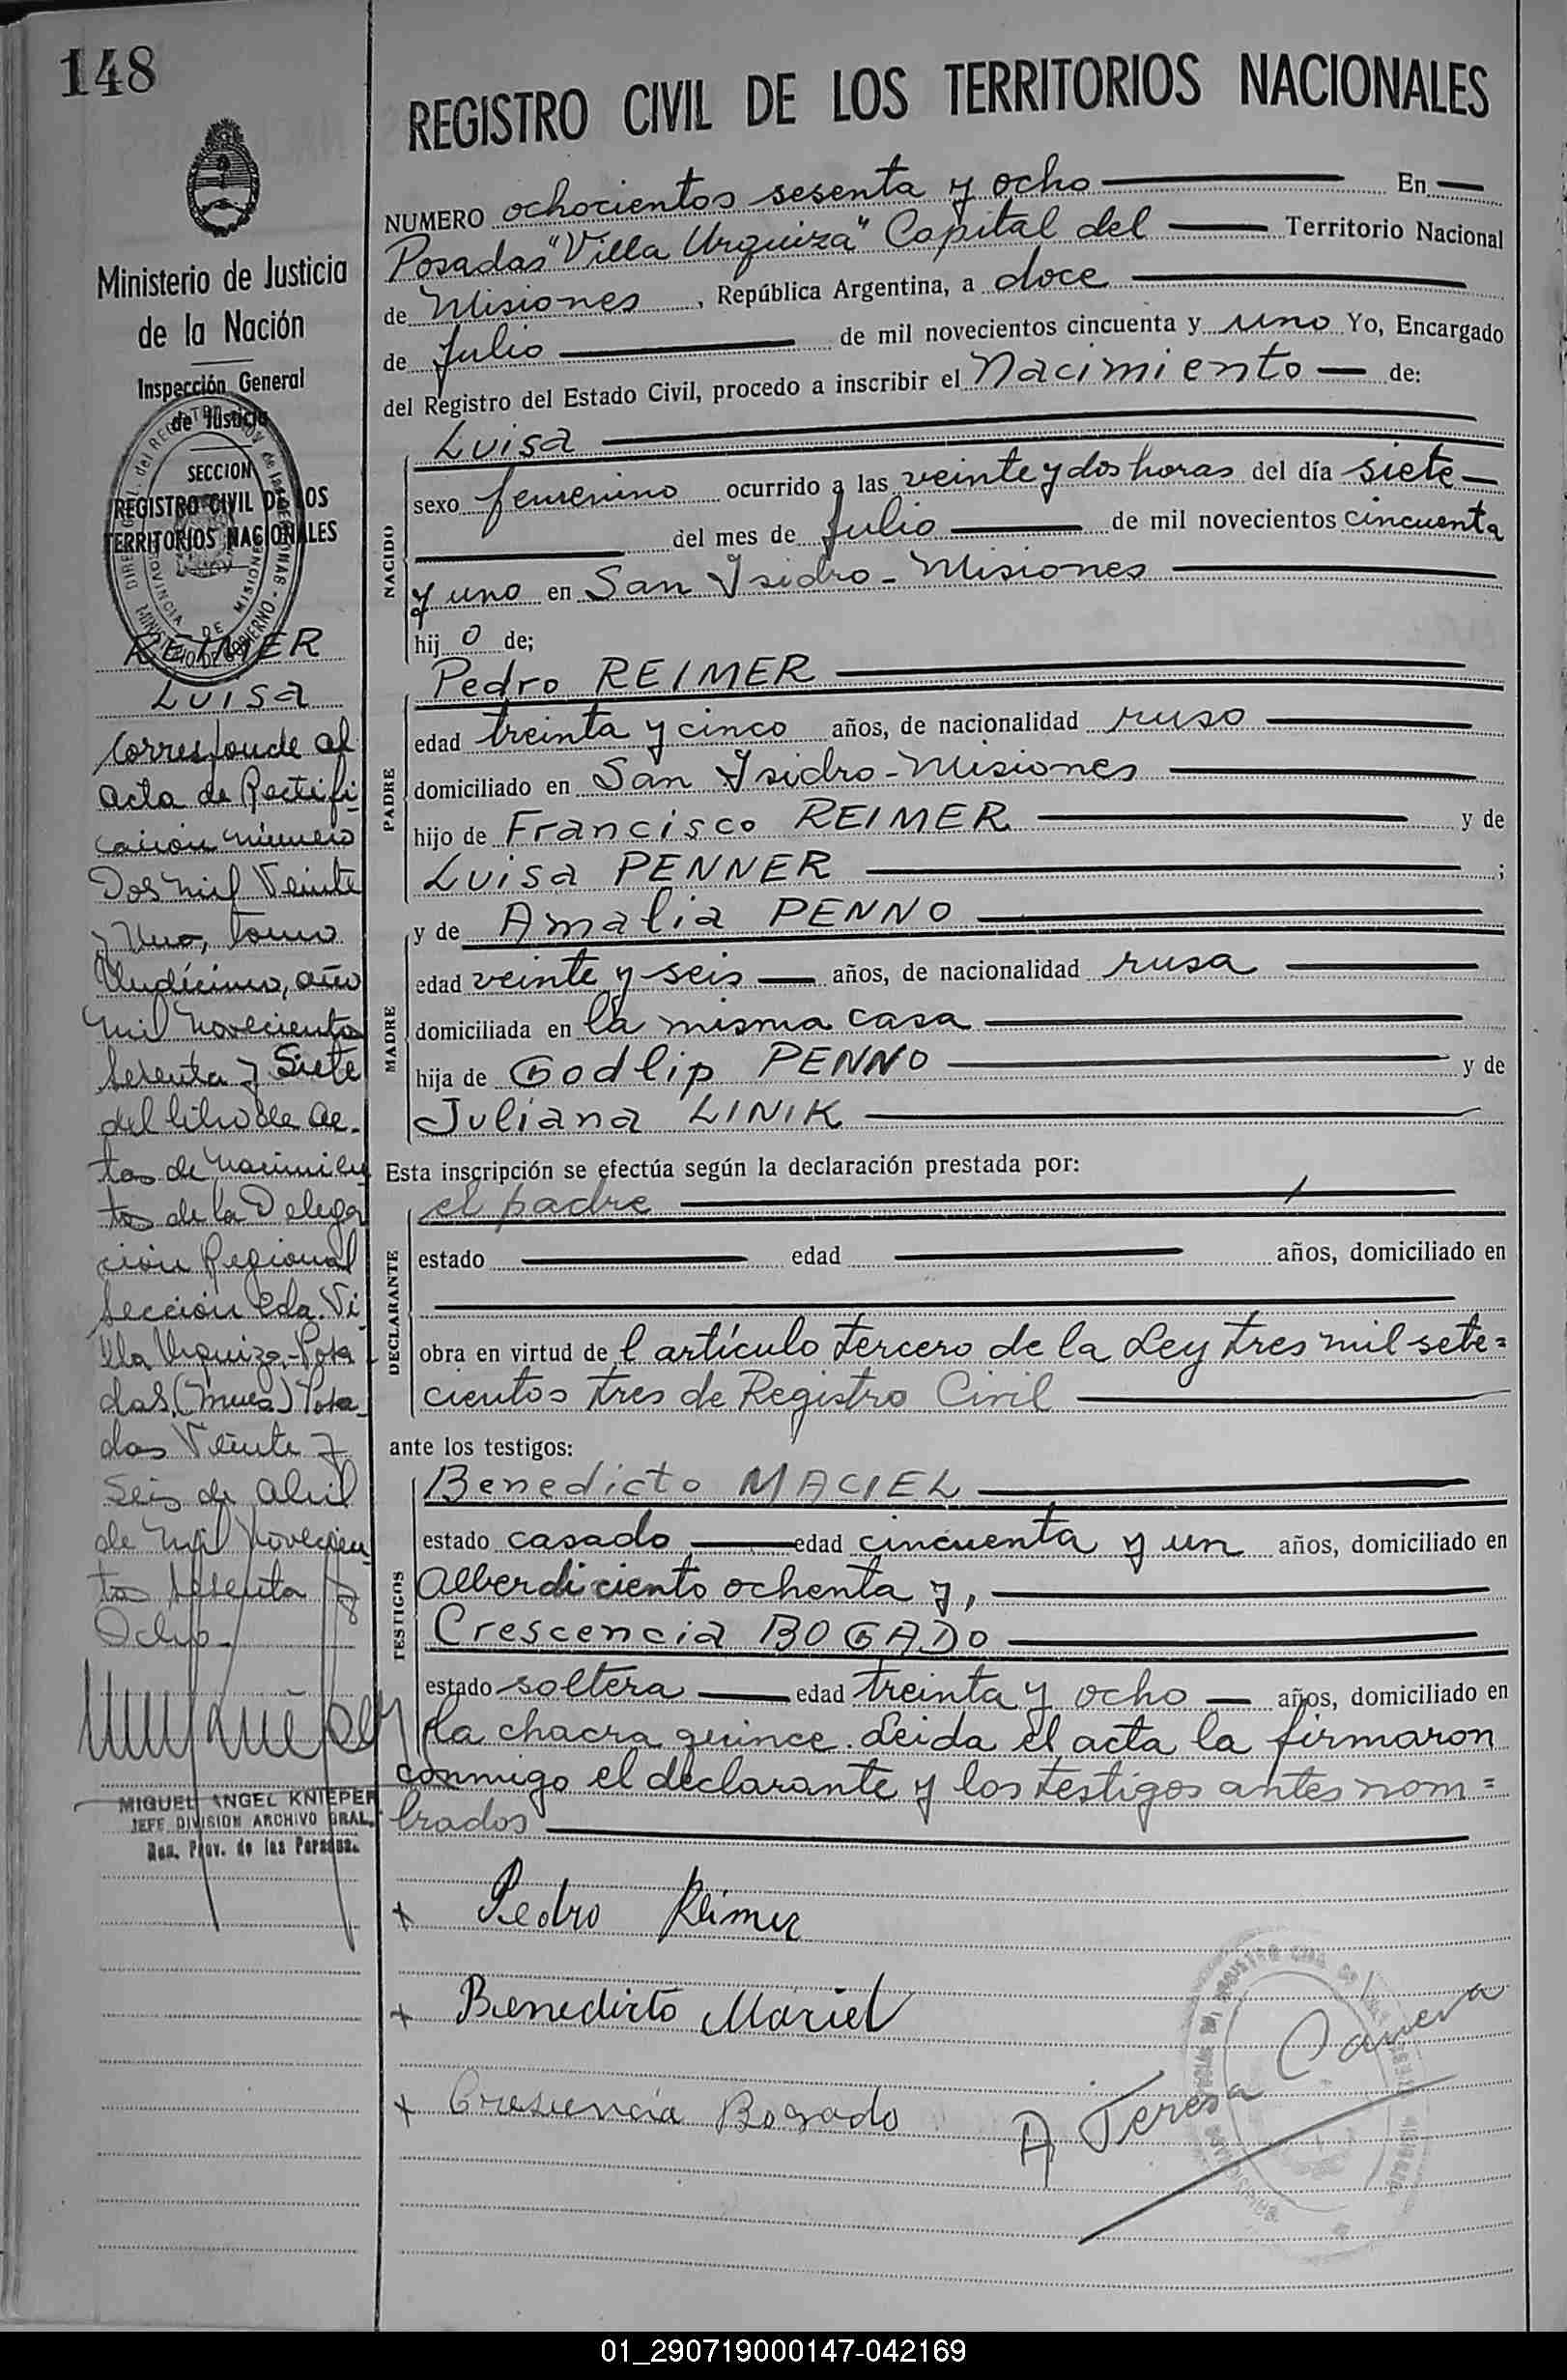 148
Ministerio de Justicia
de la Nación
Inspección General
de Justicia
SECCION
REGISTRO CIVIL DE LOS
TERRITORIOS NACIONALES
REIMER
Luisa
Corresponde al
acta de Rectifi
cación número
Dos mil Veinte
y Uno, tomo
Undécimo, año
mil novecientos
Setenta y Siete
del libro de ac-
tas de nacimien
tos de la Delega
ción Regional
Sección 2da. Vi
lla Urquiza-Posa
das, (Mnes) Posa
das Veinte y
Seis de Abril
de mil novecien
tos Setenta y
Ocho.-
MIGUEL ANGEL KNIEPER
JEFE DIVISION ARCHIVO GRAL.
Prov. de las Personas.
REGISTRO CIVIL DE LOS TERRITORIOS NACIONALES
NUMERO ochocientos sesenta y ocho En
Posadas "Villa Urquiza" Capital del Territorio Nacional
de Misiones, República Argentina, a doce
de Julio de mil novecientos cincuenta y uno Yo, Encargado
del Registro del Estado Civil, procedo a inscribir el Nacimiento de:
NACIDO
Luisa
sexo femenino ocurrido a las veinte y dos horas del día siete
del mes de Julio de mil novecientos cincuenta
y uno en San Ysidro - Misiones
hij o de;
PADRE
Pedro REIMER
edad treinta y cinco años, de nacionalidad ruso
domiciliado en San Ysidro - Misiones
hijo de Francisco REIMER y de
Luisa PENNER ;
MADRE
y de Amalia PENNO
edad veinte y seis años, de nacionalidad rusa
domiciliada en la misma casa
hija de Godlip PENNO y de
Juliana LINIK
Esta inscripción se efectúa según la declaración prestada por:
DECLARANTE
el padre
estado edad años, domiciliado en
obra en virtud de l artículo tercero de la Ley tres mil sete=
cientos tres de Registro Civil
ante los testigos:
TESTIGOS
Benedicto MACIEL
estado casado edad cincuenta y un años, domiciliado en
Alberdi ciento ochenta y,
Crescencia BOGADO
estado soltera edad treinta y ocho años, domiciliado en
la chacra quince. Leida el acta la firmaron
conmigo el declarante y los testigos antes nom=
brados
+ Pedro Reimer
+ Benedicto Maciel
+ Cresencia Bogado
A Teresa Canera
01_290719000147-042169